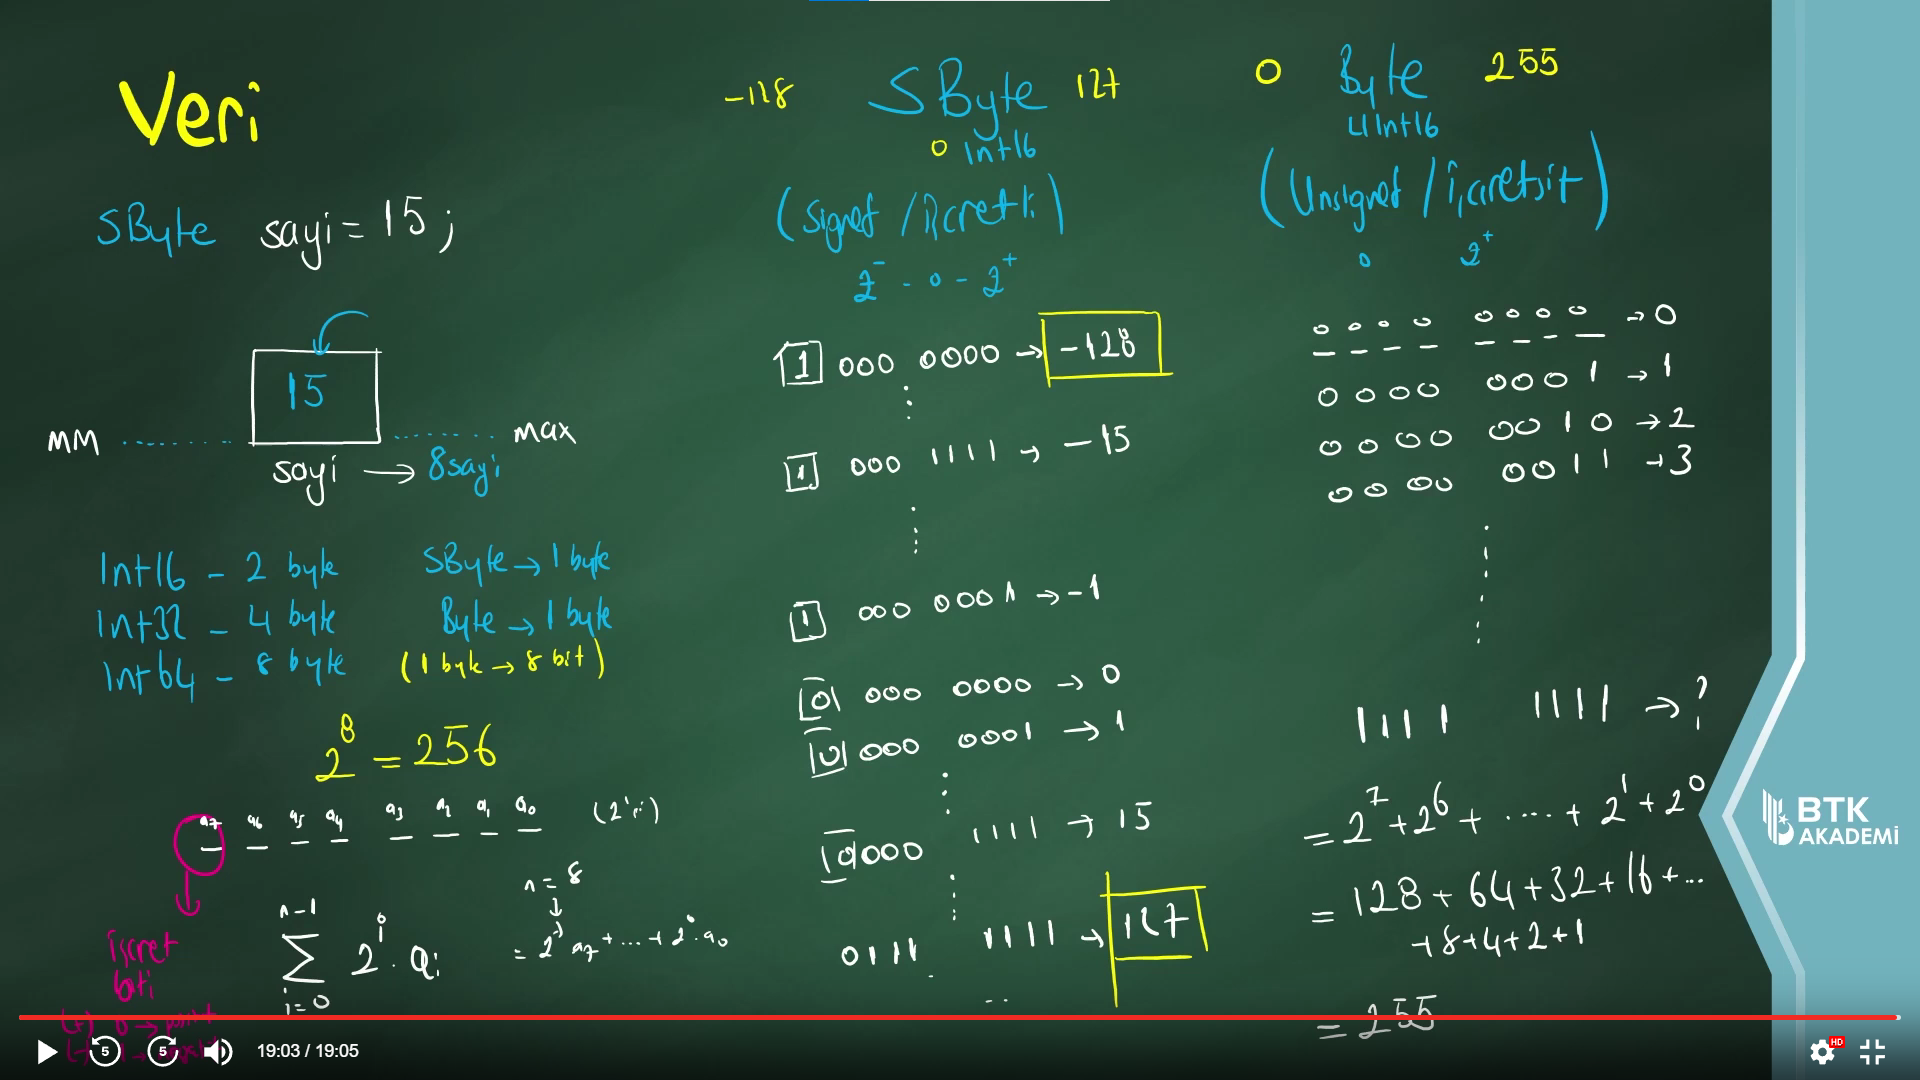 Veri
SByte sayi = 15 ;
15
min ........ ........ max
sayi → 8sayi
Int16 - 2 byte
Int32 - 4 byte
Int64 - 8 byte
SByte → 1 byte
Byte → 1 byte
(1 byte → 8 bit)
2⁸ = 256
a₇ a₆ a₅ a₄ a₃ a₂ a₁ a₀
işaret
biti
n-1
∑ 2ⁱ . aᵢ
i=0
n = 8
↓
= 2⁷ a₇ + ... + 2⁰ . a₀
-128 SByte 127
0 Int16
(Signed / İşaretli)
Z⁻ - 0 - Z⁺
1 000 0000 → -128
1 000 1111 → -15
1 000 0001 → -1
0 000 0000 → 0
0 000 0001 → 1
0 000 1111 → 15
0111 1111 → 127
0 Byte 255
UInt16
(Unsigned / işaretsiz)
0 Z⁺
0 0 0 0 0 0 0 0 → 0
0 0 0 0 0 0 0 1 → 1
0 0 0 0 0 0 1 0 → 2
0 0 0 0 0 0 1 1 → 3
1111 1111 → ?
= 2⁷ + 2⁶ + .... + 2¹ + 2⁰
= 128 + 64 + 32 + 16 + ...
+8+4+2+1
= 255
BTK
AKADEMİ
5 5 19:03 / 19:05 HD